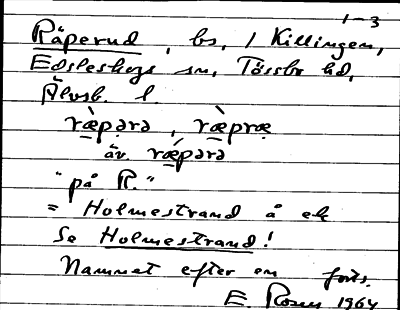 1-3
Räperud, bs, / Killingen,
Edsleskogs sn, Tössbo hd,
Älvsb. l.
ræ̀pərə, ræ̀præ
äv. rǽpərə
"på R."
= Holmestrand å ek
Se Holmestrand!
Namnet efter en forts.
E. Rosen 1964